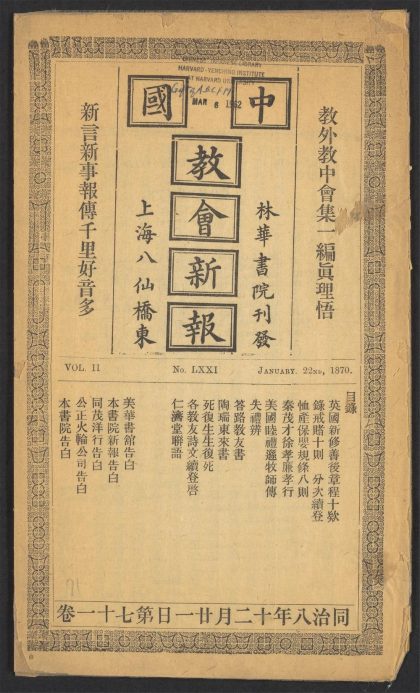 HARVARD-YENCHING INSTITUTE
AT HARVARD UNI
MAR 6 1952
中國
教會新報
教外教中會集一編眞理悟
林華書院刊發
上海八仙橋東
新言新事報傳千里好音多
VOL. II No. LXXI JANUARY. 22ND, 1870.
目錄
英國新修善後章程十欵
錄戒賭十則 分次續登
恤產保嬰規條八則
秦茂才徐孝廉孝行
美國睦禮遜牧師傳
失禮辨
答路教友書
陶瑞東來書
死復生生復死
各教友詩文續登啓
仁濟堂聯語
美華書館告白
本書院新報告白
同茂洋行告白
公正火輪公司告白
本書院告白
71
同治八年十二月廿一日第七十一卷